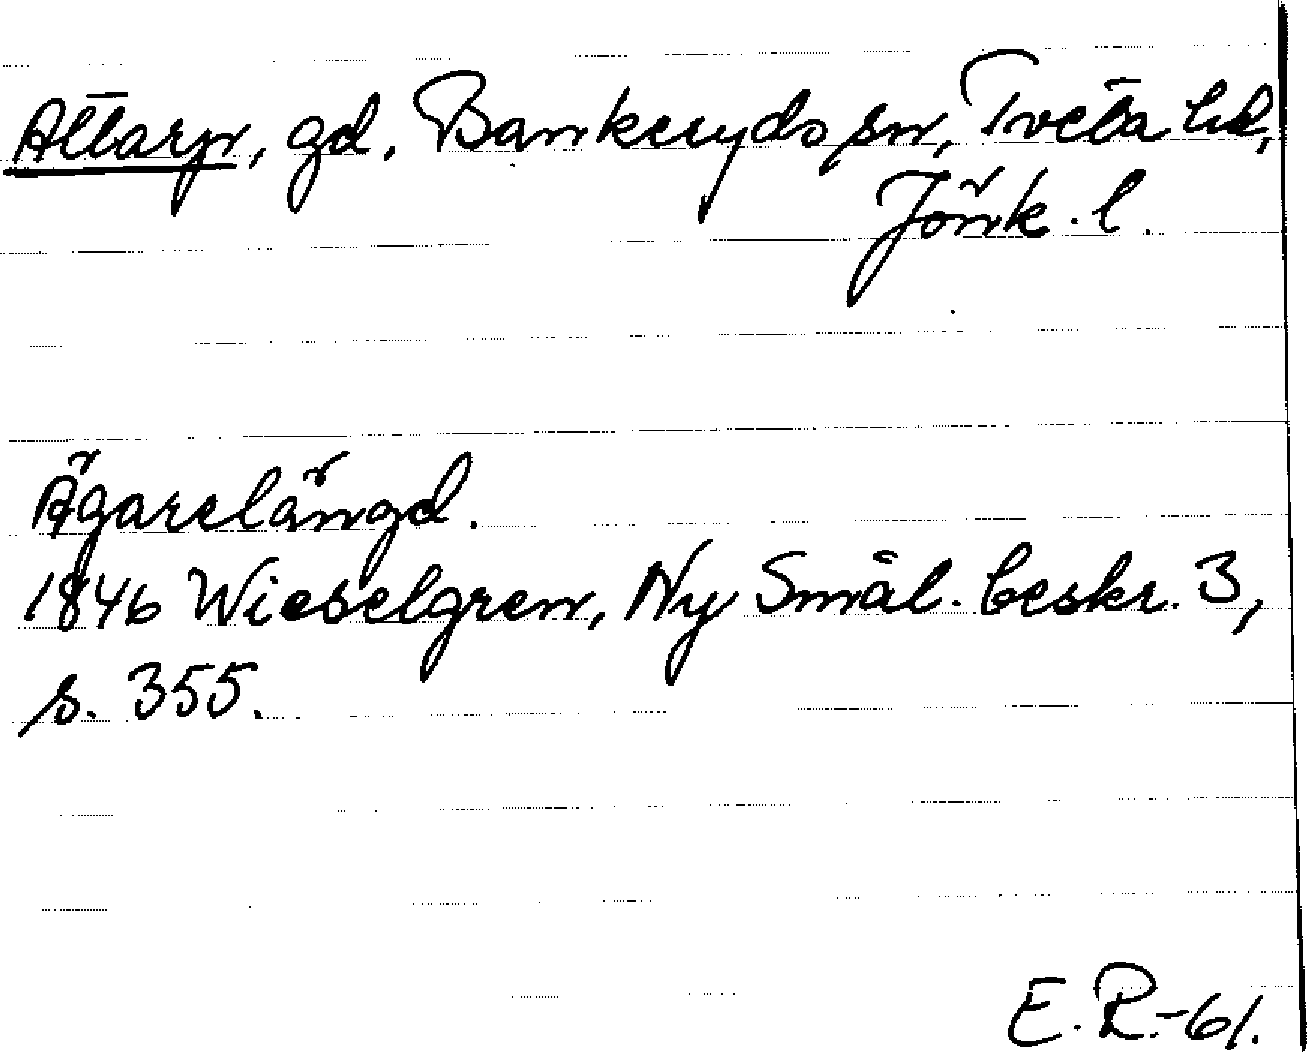 Attarp, gd, Bankeryds sn, Tveta hd,
Jönk. l.
Ägarelängd.
1846 Wieselgren, Ny Smål. beskr. 3,
s. 355.
E. R.-61.